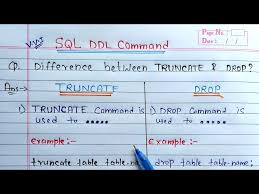 Page No.:
Date: / /
VVI SQL DDL Command
Q. Difference between TRUNCATE & DROP?
Ans→ TRUNCATE DROP
1) TRUNCATE Command is 1) DROP Command is
used to ••••• used to •••••
Example:- example:-
truncate table table_na drop table table-name;